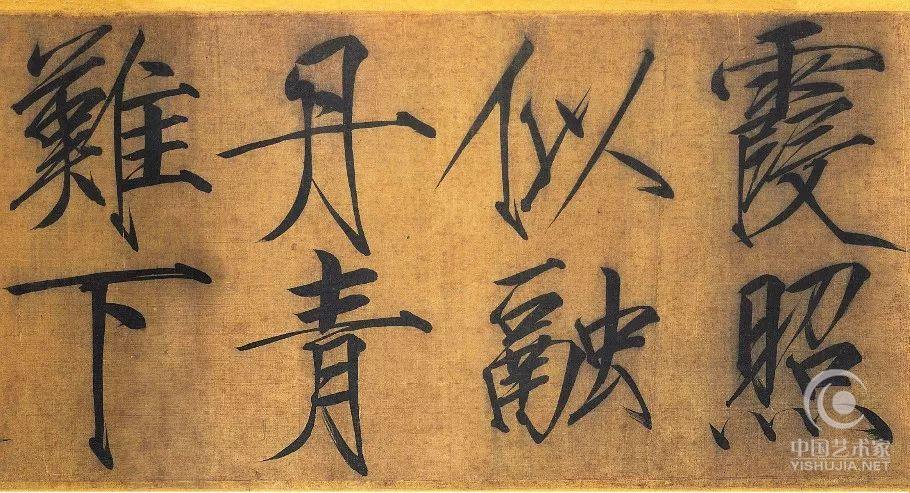 霞照
似融
丹青
難下
中国艺术家
YISHUJIA.NET